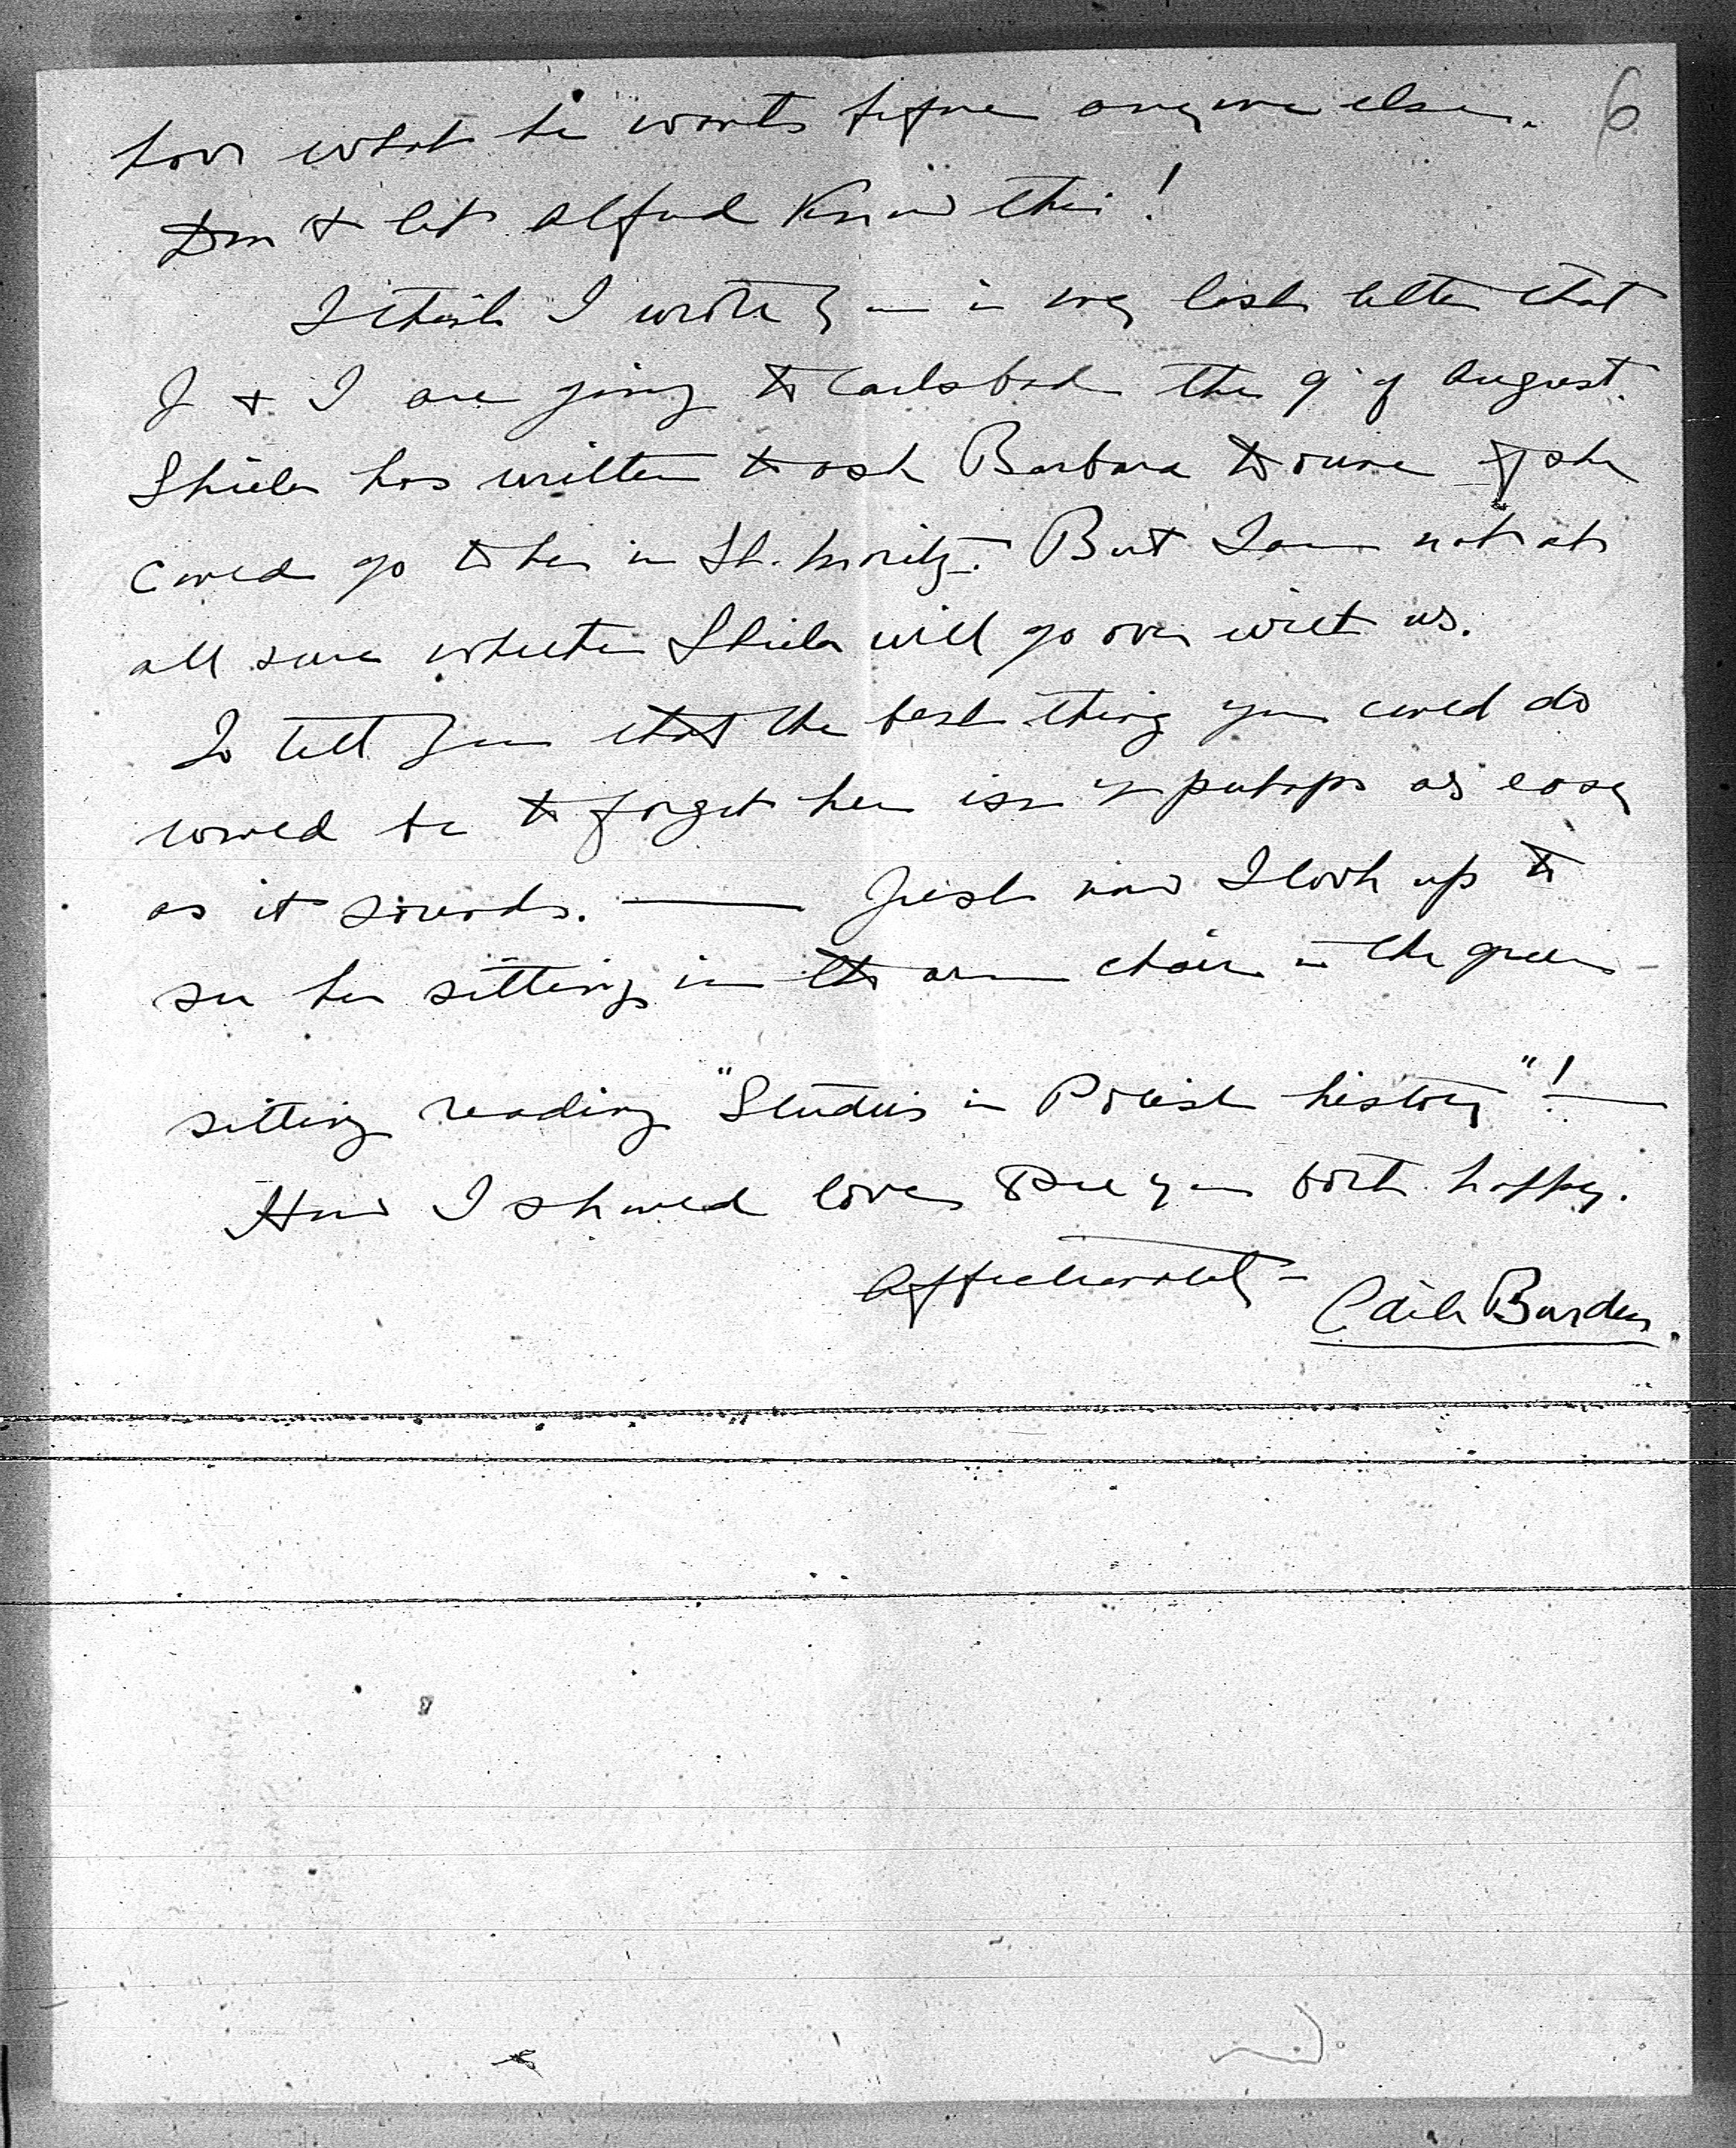 6
have what he wants before anyone else.
Don't let Alfred know this!
I think I wrote you in my last letter that
J & I are going to Carlsbad the 9' of August.
Shiela has written to ask Barbara to come if she
could go to her in St. Moritz. But I am not at
all sure whether Shiela will go over with us.
To tell you that the best thing you could do
would be to forget her isn't perhaps as easy
as it sounds. — Just now I look up to
see her sitting in the arm chair in the green
sitting reading "Studies in Polish history"! —
How I should love to see you both happy.
Affectionately —
Burden.